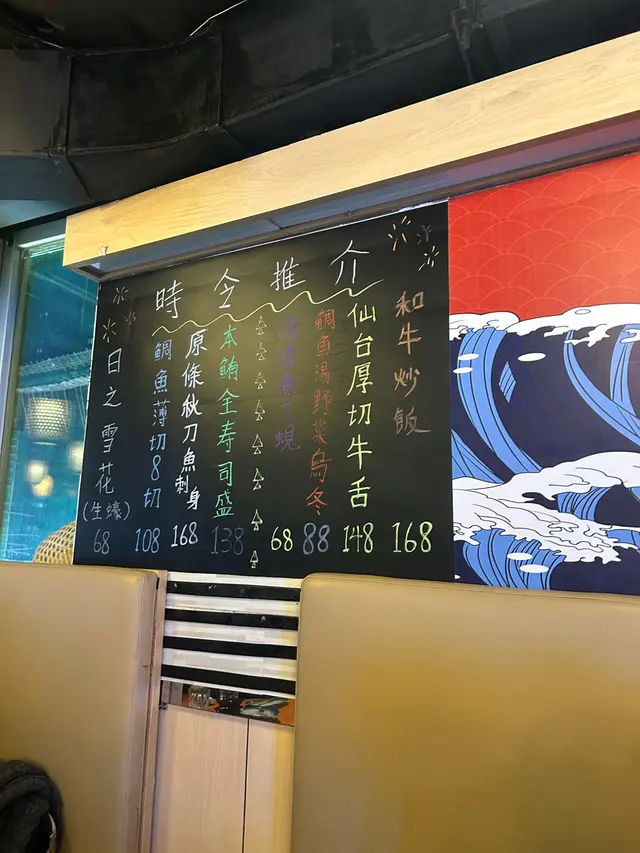 時令推介
和牛炒飯
168
仙台厚切牛舌
148
鯛魚湯野菜烏冬
88
蜆
68
本鮪全寿司盛
138
原條秋刀魚刺身
168
鯛魚薄切8切
108
日之雪花
(生蠔)
68